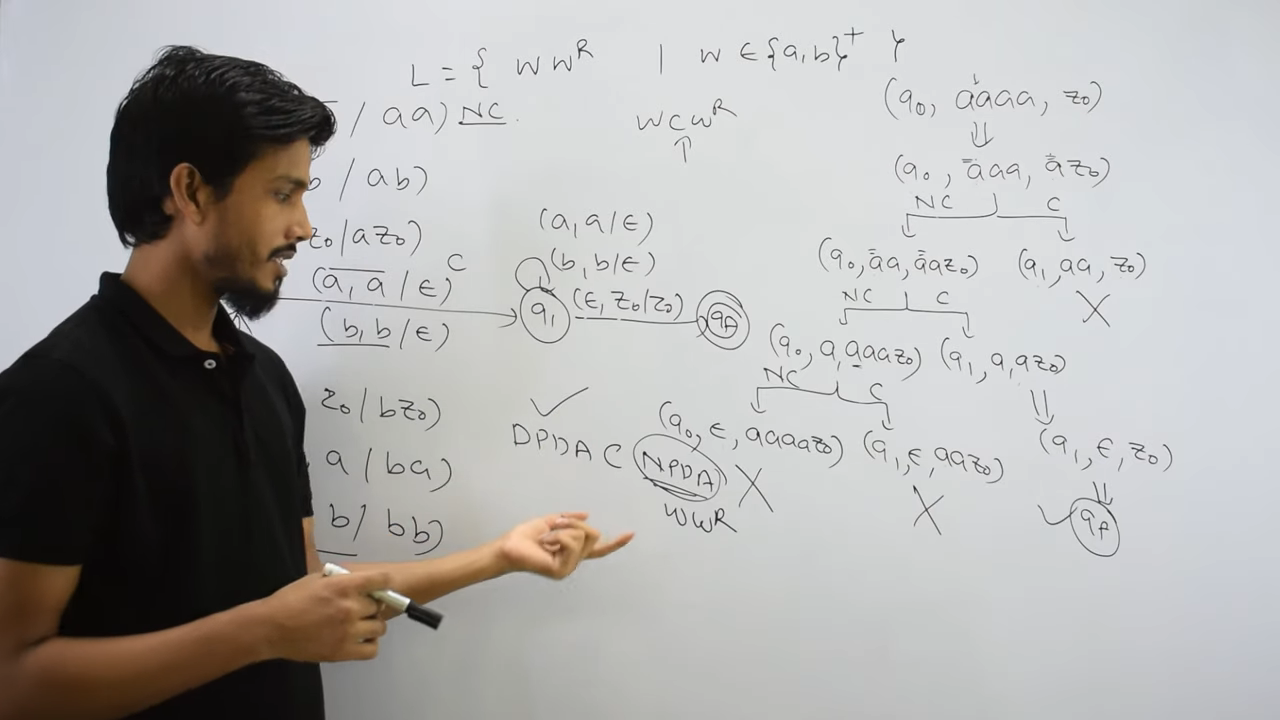 L = { WWᴿ | W ∈ {a,b}⁺ }
/ aa) NC.
WCWᴿ
↑
/ ab)
z₀/az₀)
(a, a/ε) C
(b, b/ε)
z₀/bz₀)
a/ba)
b/bb)
(a, a/ε)
(b, b/ε)
q₁ (ε, z₀/z₀) qf
✓
DPDA ⊂ NPDA
WWR
(q₀, aaaa, z₀)
⇓
(q₀, aaa, az₀)
NC C
(q₀, aa, aaz₀) (q₁, aa, z₀)
NC C X
(q₀, a, aaaz₀) (q₁, a, az₀)
NC C ⇓
(q₀, ε, aaaaz₀) (q₁, ε, aaz₀) (q₁, ε, z₀)
X X ⇓
✓ qf